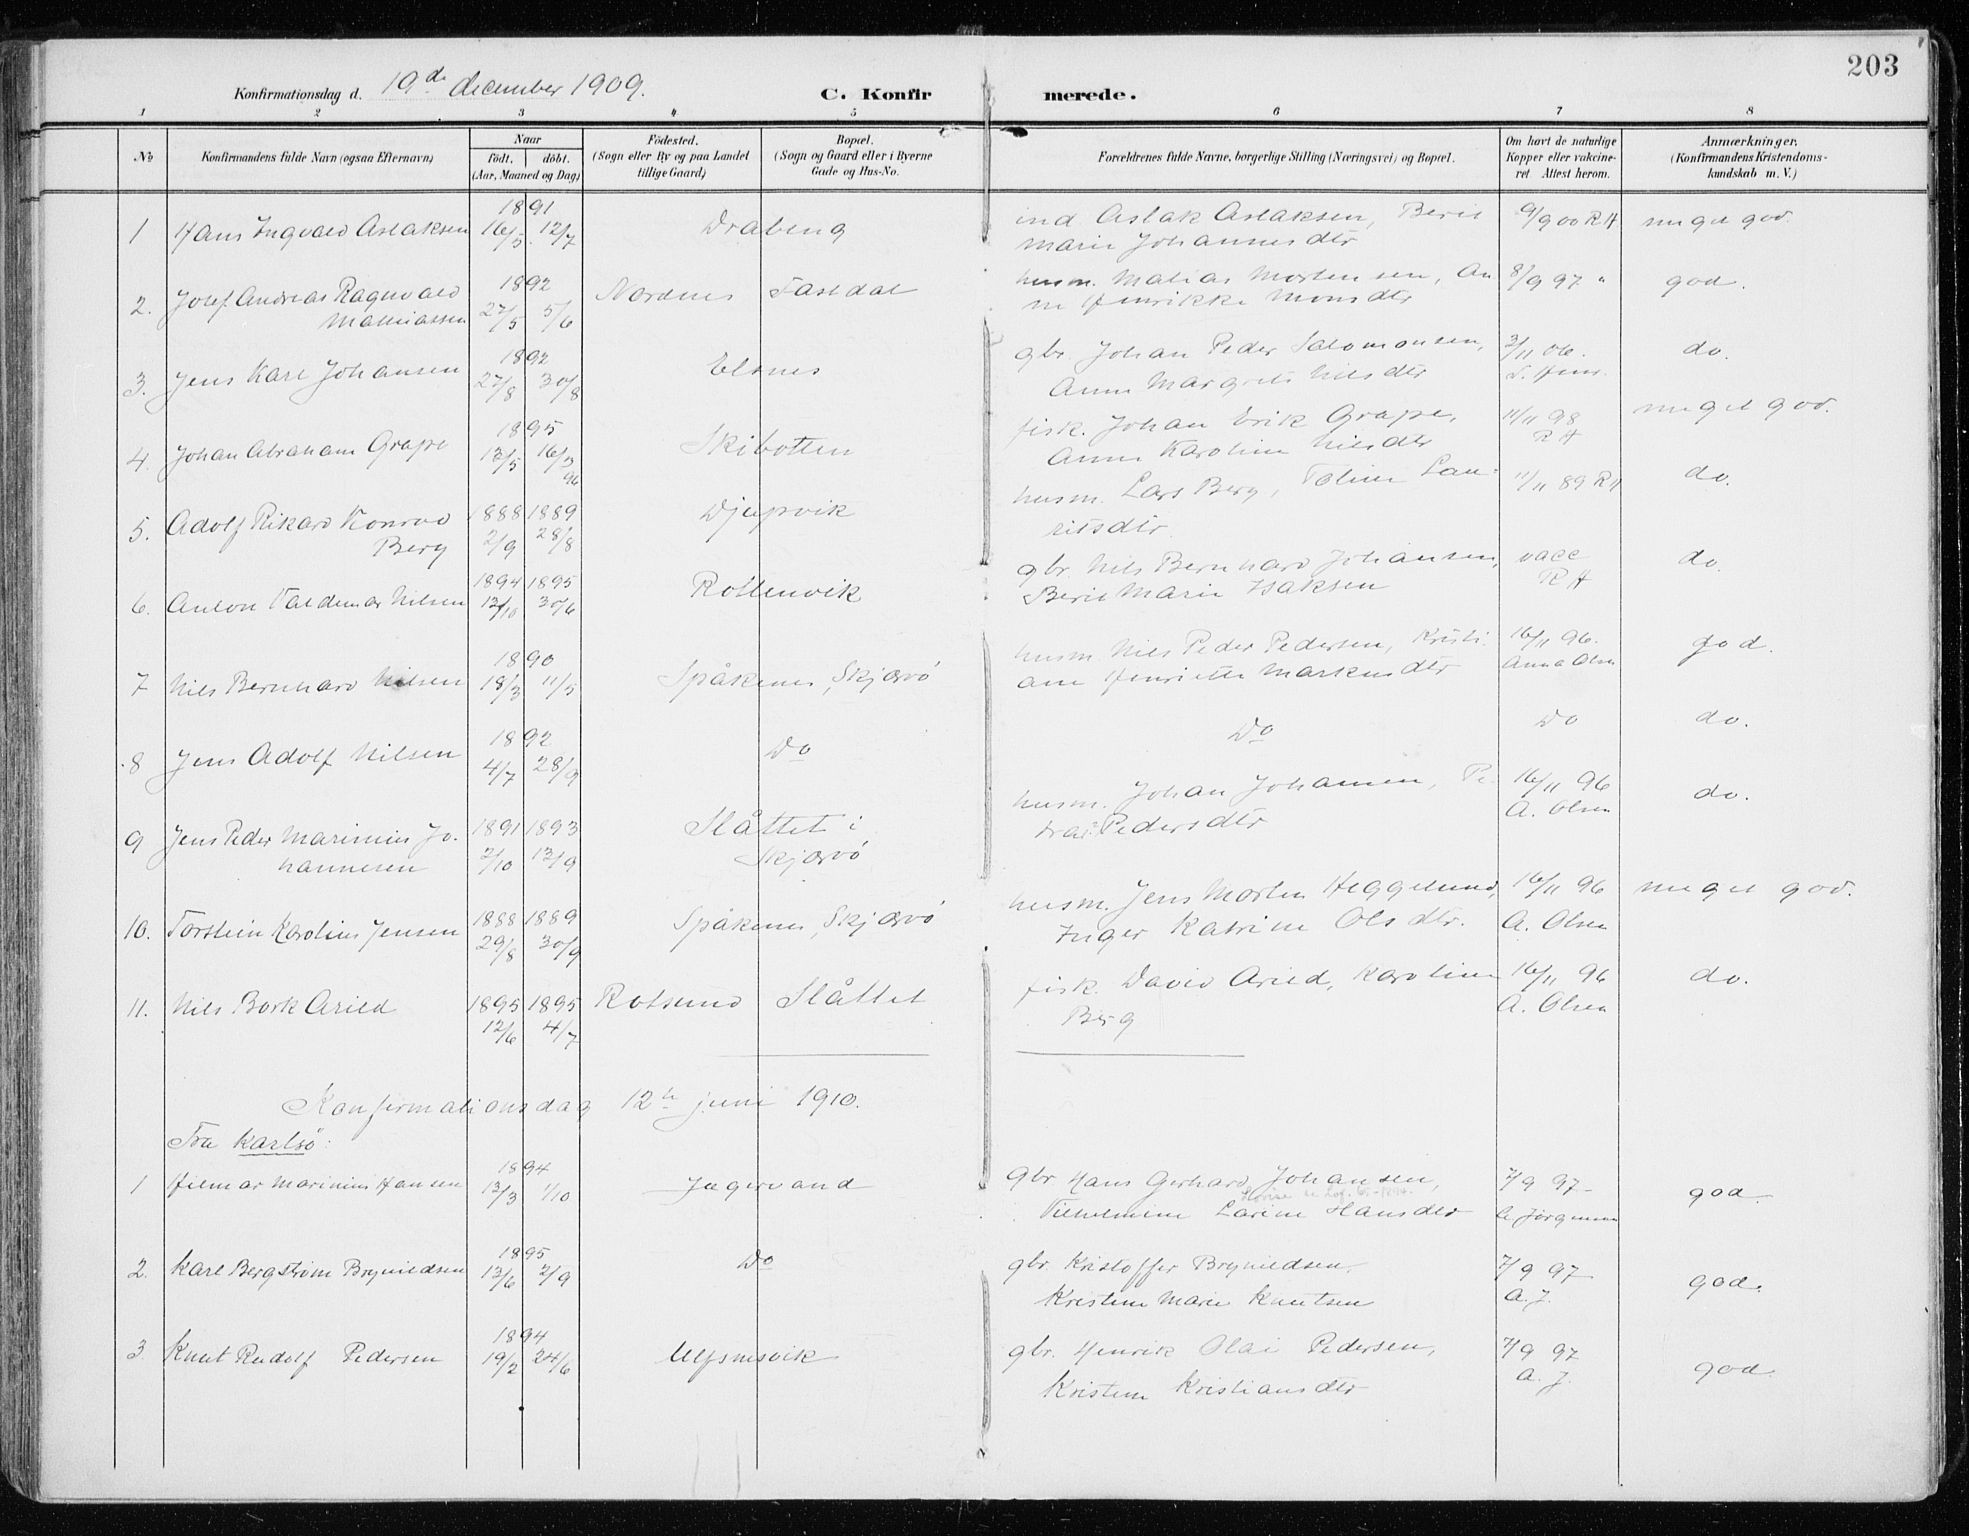 203
Konfirmationsdag d. 19de december 1909.
C. Konfirmerede.
1 2 3 4 5 6 7 8
No
Konfirmandens fulde Navn (ogsaa Efternavn)
Naar
födt. döbt.
(Aar, Maaned og Dag)
Födested.
(Sogn eller By og paa Landet
tillige Gaard)
Bopæl.
(Sogn og Gaard eller i Byerne
Gade og Hus-No.
Forældrenes fulde Navne, borgerlige Stilling (Næringsvei) og Bopæl.
Om havt de naturlige
Kopper eller vakcine-
ret Attest herom.
Anmærkninger.
(Konfirmandens Kristendoms-
kundskab m. V.)
1 Hans Ingvald Aslaksen 1891 16/5 12/7 Drabeng ind. Aslak Aslaksen, Berit 9/9 00 RH meget god.
Marie Johannesdtr
2. Josef Andreas Ragnvald 1892 Nordnes husm. Matias Mortensen, An 8/9 97 " god.
Mathiassen 27/5 5/6 ne Henrikke Monsdtr
3. Jens Karl Johansen 1892 27/8 30/8 Elsnes gbr. Johan Peder Salomonsen, 3/11 06. do.
Anne Margrete Nilsdtr
4. Johan Abraham Grape 1895 13/5 16/3 96 Skibotten fisk. Johan Erik Grape, 11/11 98 meget god.
Anne Karoline Nilsdtr RH
5. Adolf Rikard Konrad 1888 1889 Djupvik husm. Lars Berg, Lau- 11/11 89 RH do.
Berg 2/9 28/8 ritsdtr.
6. Anton Valdemar Nilsen 1894 1895 13/10 30/6 Rottenvik gbr. Nils Bernhard Johansen, vacc do.
Berit Marie Isaksen RH
7 Nils Bernhard Nilsen 1890 18/3 11/5 Spåkenes, Skjærvö husm. Nils Peder Pedersen, Kristi- 16/11 96. god.
ane Henriette Markusdtr Anna Olsen
8 Jens Adolf Nilsen 1892 4/7 28/9 Do Do Do do.
9 Jens Peder Marinius Jo- 1891 1893 Slåttet i husm. Johan Johansen, Pe- 16/11 96 do.
hannesen 2/10 13/9 Skjærvö Pedersdtr A. Olsen
10. Torstein Karolius Jensen 1888 1889 29/8 30/9 Spåkenes, Skjærvö husm. Jens Morten Heggelund, 16/11 96 meget god.
Inger Katrine Olsdtr. A. Olsen
11. Nils Bork Arild 1895 1895 12/6 4/7 Rotsund Slåttet fisk. David Arild, Karoline 16/11 96 do.
Berg A. Olsen
Konfirmationsdag 12te juni 1910.
Fra Karlsö:
1 Hilmar Marinius Hansen 1894 13/3 1/10 Jægervand gbr Hans Gerhard Johansen, 7/9 97 god.
Vilhelmine Larine Hansdtr
2. Karl Bergström Brynildsen 1895 13/6 2/9 Do gbr. Kristoffer Brynildsen, 7/9 97 god.
Kristine Marie Knutsen A. J.
3 Knut Rudolf Pedersen 1894 19/2 24/6 Ulfsnesvik gbr. Henrik Olai Pedersen, 7/9 97 god.
Kristine Kristiansdtr A. J.